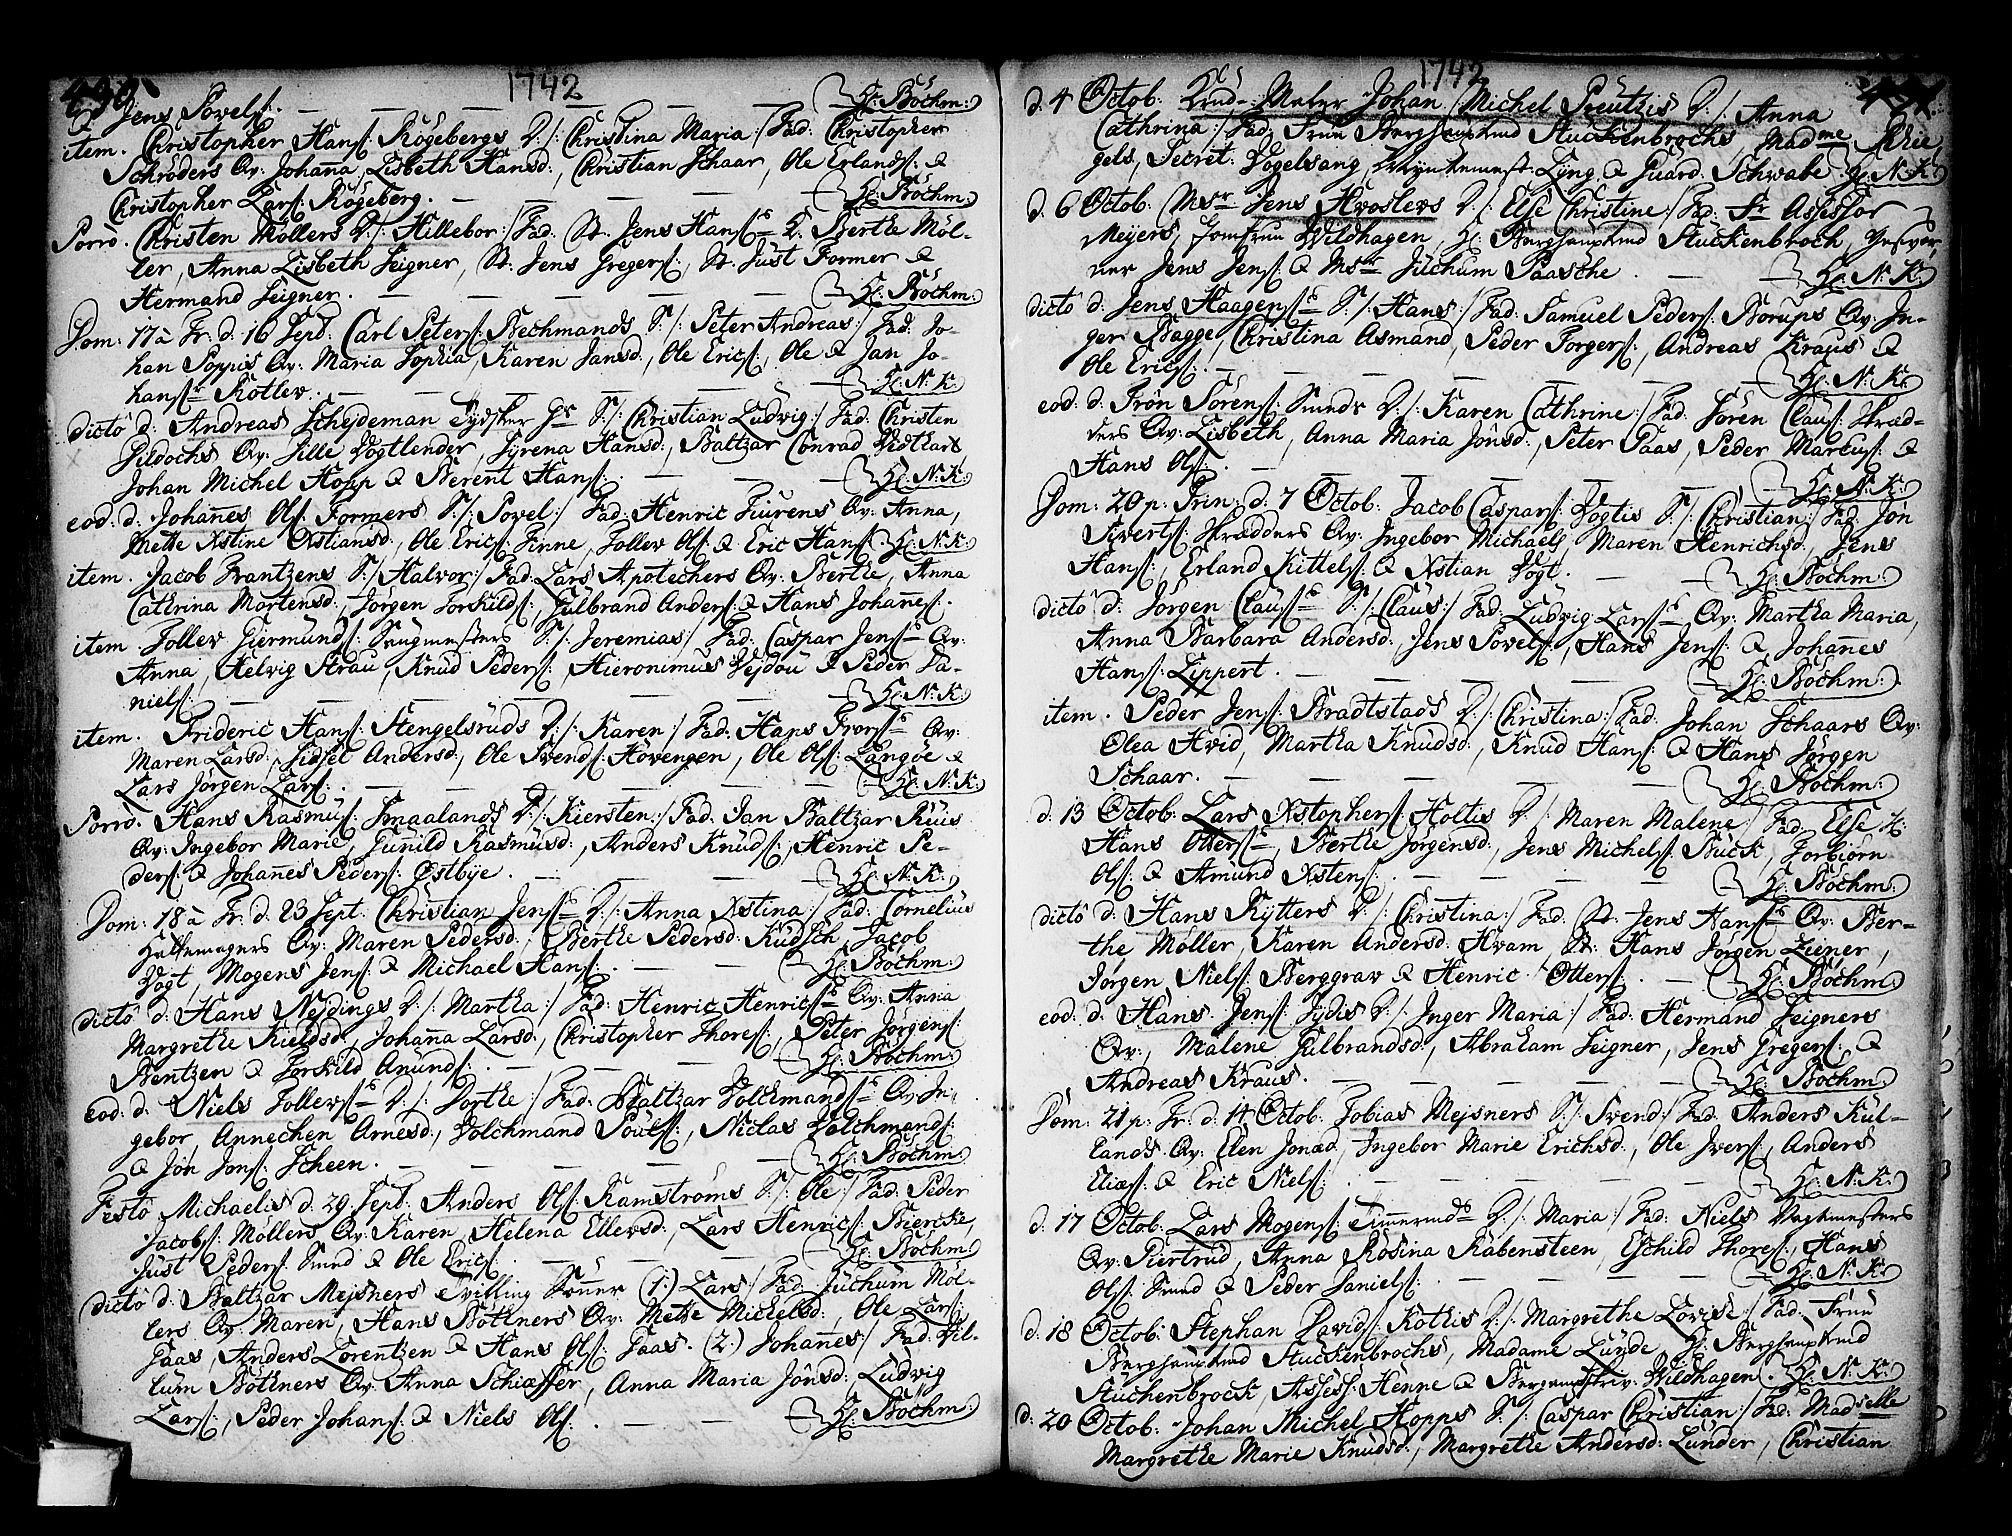 430
1742
& Jens Povels: — — — — Hr: Böchm:
item. Christopher Hans: Kögebergs D:/: Christina Maria:/ Fad: Christopher
Schröders Qv: Johanna, Lisbeth Hansd:, Christian Schaar, Ole Erlands: &
Christopher Lars: Kögeberg. — — — — Hr: Böchm:
Porrò. Christen Möllers D:/: Hillebor:/ Fad: St. Jens Hans: Q. Berthe Möl-
ler, Anna Lisbeth Seigner, St: Jens Gregers:, St. Just Former &
Hermand Seigner. — — — — Hr: Böchm:
Dom: 17 à Tr: d: 16 Sept: Carl Peters: Bechmands S:/: Peter Andreas:/ Fad: Jo-
han Poppis Qv: Maria Sophia, Karen Jansd:, Ole Erics:, Ole & Jan Jo-
hans: Kotlev. — — — — Hr: N: K:
dictô d: Andreas Schejdeman Tydsker S:/: Christian Ludvig:/ Fad: Christen
Dildochs Qv: Sille Vogtlender, Syrena Hansd:, Baltzar Conrad
Johan Michel Hopp & Berent Hans: — — — Hr: N: K:
eod: d: Johannes Ols: Formers S:/: Povel:/ Fad: Henric Fuurens Qv: Anna,
Mette Xstine Xstiansd:, Ole Erics: Finne, Tollev Ols: & Eric Hans: Hr: N: K:
item. Jacob Frantzens S:/: Halvor:/ Fad: Lars Apotechers Qv: Berthe, Anna
Cathrina Mortensd:, Jörgen Torkilds:, Gulbrand Anders: & Hans Johannes:.
item Tollev Giermunds: S:/: Jeremias:/ Fad: Caspar Jens: Qv:
Anna, Helvig Strau, Knud Peders: Hieronimus Vejdou & Peder Da-
niels: — — — — Hr: N: K:
item. Frideric Hans: Stengelsruds D:/: Karen:/ Fad: Hans Ivers: Qv:
Maren Larsd:, Sidsel Andersd:, Ole Svends: Hovengen, Ole Ols: Langöe &
Lars Jörgen Lars: — — — — Hr: N: K:
Porrò. Hans Rasmus: Smaalands D:/: Kiersten:/ Fad: Jan Baltzar Ruus
Qv: Ingebor Marie, Gunild Rasmusd:, Anders Knuds:, Henric Pe-
ders: & Johannes Peders: Östbye. — — — Hr: N: K:
Dom: 18 à Tr: d: 23 Sept: Christian Jens: D:/: Anna Xstina:/ Fad: Cornelius
Hattemagers Qv: Maren Pedersd:, Berthe Pedersd: Kudsch, Jacob
Vogt, Mogens Jens: & Michael Hans: — — — Hr: Böchm:
dictô d: Hans Nejdings D:/: Martha:/ Fad: Henric Henrics: Qv: Anna
Margrethe Kieldsd:, Johanna Larsd:, Christopher Thores:, Peter Jörgens:
Bentzen & Torkild Amunds: — — — Hr: Böchm:
eod: d: Niels Tollevs: D:/: Dorthe:/ Fad: Baltzar Volchmands: Qv: In,
gebor, Annechen Arnesd:, Volchmand Pouls:, Niclas Volchmands:
& Jön Jons: Scheen. — — — — Hr: Böchm:
Festo Michaelis d. 29 Sept: Anders Ols: Ramströms S:/: Ole:/ Fad: Peder
Jacobs: Möllers Qv: Karen, Helena Ellevsd:, Lars Henrics: Biercke,
Just Peders: Smed & Ole Erics: — — — Hr: Böchm:
dictô d: Baltzar Mejsners Tvilling Sönner (1:) Lars:/ Fad: Juchum Möl-
lers Qv: Maren, Hans Böttners Qv: Mette Michelsd:, Ole Lars:
Paas, Anders Lorentzen & Hans Ols: Paas. (2:) Johannes:/ Fad: Vil-
lum Böttners Qv: Anna Schiæffer, Anna Maria Jönsd: Ludvig
Lars:, Peder Johans: & Niels Ols: — — — Hr: Böchm:
1742
d. 4 Octob: Johan Michel Preutzis D:/: Anna
Cathrina:/ Fad: Fruu Berghauptmd Stuckenbrochs, Madme
gels, Secret: Vogelsang, Myntemest: Lyng, & Guard: Schwabe Hr: N: K:
d. 6 Octob: Msr Jens Hvoslevs D:/: Else Christine:/ Fad: Sr Assessor
Meyers, Jomfruu Wildhagen, Hr: Berghauptmd Stuckenbroch,
ner Jens Jens: & Msr Juchum Paasche. — — Hr: N: K:
dictô d: Jens Haagens: S:/: Hans:/ Fad: Samuel Peders: Borups Qv: In-
ger Bagge, Christina Asmand, Peder Torgers:, Andreas Kraus &
Ole Erics: — — — — Hr: N: K:
eod: d: Trön Sörens: Smeds D:/: Karen Cathrine:/ Fad: Sören Claus: Skræd-
ders Qv: Lisbeth, Anna Maria Jönsd:, Peter Paas, Peder Marcus: &
Hans Ols: — — — — Hr: N: K:
Dom: 20 p: Trin: d: 7 Octob: Jacob Caspars: Vogtis S:/: Christian:/ Fad: Jön
Siverts: Skrædders Qv: Ingebor Michaels, Maren Henrichsd:, Jens
Hans:, Erland Kittels: & Xstian Vogt. — — Hr: Böchm:
dictô d: Jörgen Claus: S:/: Claus:/ Fad: Ludvig Lars: Qv: Martha Maria,
Anna Barbara Andersd:, Jens Povels:, Hans Jens: & Johannes
Hans: Lippert. — — — — Hr: Böchm:
item. Peder Jens: Bradtstads D:/: Christina:/ Fad: Johan Schaars Qv:
Olea Hvid, Martha Knudsd:, Knud Hans: & Hans Jörgen
Schaar. — — — — Hr: Böchm:
d: 13 Octob: Lars Xstophers: Holtis D:/: Maren Malene:/ Fad: Else
Hans Otters:, Berthe Jörgensd:, Jens Michels: Buck, Torbiörn
Ols: & Amund Xstens: — — — Hr: Böchm:
dictô d: Hans Rytters D:/: Christina:/ Fad: St. Jens Hans: Qv: Ber-
the Möller, Karen Andersd: Hvam St: Hans Jörgen Ziener,
Jörgen Niels: Berggrav & Henric Otters: — Hr: Böchm:
eod: d: Hans Jens: Tydis D:/: Inger Maria:/ Fad: Hermand Seigners
Qv:, Malene Gulbrandsd:, Abraham Seigner, Jens Gregers: &
Andreas Kraus. — — — — Hr: Böchm:
Dom: 21 p: Tr: d: 14 Octob: Tobias Mejsners S:/: Svend:/ Fad: Anders Kul-
lands Qv: Elen Jonæd, Ingebor Marie Erichsd:, Ole Ivers:, Anders
Elias: & Eric Niels: — — — — Hr: N: K:
d: 17 Octob: Lars Mogens: Timmermds D:/: Maria:/ Fad: Niels Vagtmesters
Qv: Siertrud, Anna Rosina Rabensteen, Eschild Thores:, Hans
Ols: Smed & Peder Daniels: — — — Hr: N: K:
d: 18 Octob: Stephan Davids: Kothis D:/: Margrethe Lovise:/ Fad: Fruu
Berghauptmd Stuckenbrochs, Madame Lunde, Hr: Berghauptmd
Stuckenbrock, Assess: Henne & Bergamtskriv: Wildhagen. Hr: N: K:
d: 20 Octob: Johan Michel Hopps S:/: Caspar Christian:/ Fad: Madselle
Margrethe Marie Knudsd:, Margrethe Andersd: Lunder, Christian